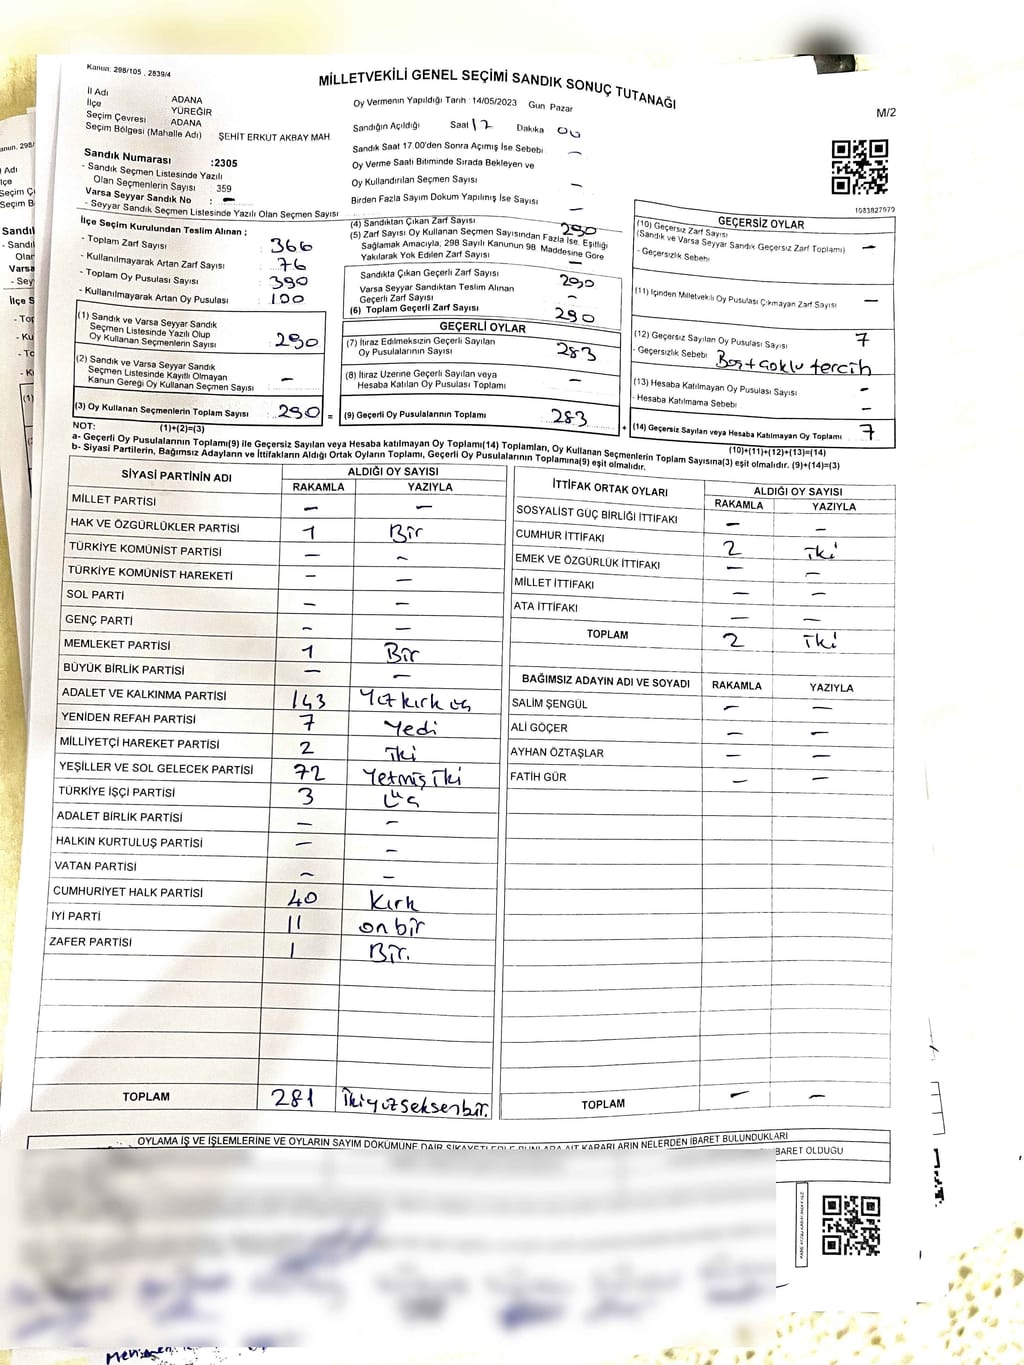 Kanun: 298/105 , 2839/4
MİLLETVEKİLİ GENEL SEÇİMİ SANDIK SONUÇ TUTANAĞI
M/2
İl Adı : ADANA
İlçe : YÜREĞİR
Seçim Çevresi : ADANA
Seçim Bölgesi (Mahalle Adı) : ŞEHİT ERKUT AKBAY MAH.
Sandık Numarası :2305
- Sandık Seçmen Listesinde Yazılı
Olan Seçmenlerin Sayısı : 359
Varsa Seyyar Sandık No : -
- Seyyar Sandık Seçmen Listesinde Yazılı Olan Seçmen Sayısı : -
Oy Vermenin Yapıldığı Tarih :14/05/2023 Gün Pazar
Sandığın Açıldığı Saat 17 Dakika 00
Sandık Saat 17.00'den Sonra Açılmış İse Sebebi -
Oy Verme Saati Bitiminde Sırada Bekleyen ve
Oy Kullandırılan Seçmen Sayısı -
Birden Fazla Sayım Döküm Yapılmış İse Sayısı -
1083827979
İlçe Seçim Kurulundan Teslim Alınan ;
- Toplam Zarf Sayısı : 366
- Kullanılmayarak Artan Zarf Sayısı : 76
- Toplam Oy Pusulası Sayısı : 390
- Kullanılmayarak Artan Oy Pusulası : 100
(1) Sandık ve Varsa Seyyar Sandık
Seçmen Listesinde Yazılı Olup
Oy Kullanan Seçmenlerin Sayısı : 290
(2) Sandık ve Varsa Seyyar Sandık
Seçmen Listesinde Kayıtlı Olmayan
Kanun Gereği Oy Kullanan Seçmen Sayısı : -
(3) Oy Kullanan Seçmenlerin Toplam Sayısı : 290 =
(1)+(2)=(3)
(4) Sandıktan Çıkan Zarf Sayısı : 290
(5) Zarf Sayısı Oy Kullanan Seçmen Sayısından Fazla İse, Eşitliği
Sağlamak Amacıyla; 298 Sayılı Kanunun 98. Maddesine Göre
Yakılarak Yok Edilen Zarf Sayısı : -
Sandıkta Çıkan Geçerli Zarf Sayısı : 290
Varsa Seyyar Sandıktan Teslim Alınan
Geçerli Zarf Sayısı : -
(6) Toplam Geçerli Zarf Sayısı : 290
GEÇERLİ OYLAR
(7) İtiraz Edilmeksizin Geçerli Sayılan
Oy Pusulalarının Sayısı : 283
(8) İtiraz Üzerine Geçerli Sayılan veya
Hesaba Katılan Oy Pusulası Toplamı : -
(9) Geçerli Oy Pusulalarının Toplamı : 283 +
GEÇERSİZ OYLAR
(10) Geçersiz Zarf Sayısı
(Sandık ve Varsa Seyyar Sandık Geçersiz Zarf Toplamı) : -
- Geçersizlik Sebebi :
(11) İçinden Milletvekili Oy Pusulası Çıkmayan Zarf Sayısı : -
(12) Geçersiz Sayılan Oy Pusulası Sayısı : 7
- Geçersizlik Sebebi : Boş+çoklu tercih
(13) Hesaba Katılmayan Oy Pusulası Sayısı : -
- Hesaba Katılmama Sebebi : -
(14) Geçersiz Sayılan veya Hesaba Katılmayan Oy Toplamı : 7
(10)+(11)+(12)+(13)=(14)
NOT:
a- Geçerli Oy Pusulalarının Toplamı(9) ile Geçersiz Sayılan veya Hesaba katılmayan Oy Toplamı(14) Toplamları, Oy Kullanan Seçmenlerin Toplam Sayısına(3) eşit olmalıdır. (9)+(14)=(3)
b- Siyasi Partilerin, Bağımsız Adayların ve İttifakların Aldığı Ortak Oyların Toplamı, Geçerli Oy Pusulalarının Toplamına(9) eşit olmalıdır.
SİYASİ PARTİNİN ADI ALDIĞI OY SAYISI
RAKAMLA YAZIYLA
MİLLET PARTİSİ - -
HAK VE ÖZGÜRLÜKLER PARTİSİ 1 Bir
TÜRKİYE KOMÜNİST PARTİSİ - -
TÜRKİYE KOMÜNİST HAREKETİ - -
SOL PARTİ - -
GENÇ PARTİ - -
MEMLEKET PARTİSİ 1 Bir
BÜYÜK BİRLİK PARTİSİ - -
ADALET VE KALKINMA PARTİSİ 143 Yüzkırküç
YENİDEN REFAH PARTİSİ 7 Yedi
MİLLİYETÇİ HAREKET PARTİSİ 2 iki
YEŞİLLER VE SOL GELECEK PARTİSİ 72 Yetmiş iki
TÜRKİYE İŞÇİ PARTİSİ 3 Üç
ADALET BİRLİK PARTİSİ - -
HALKIN KURTULUŞ PARTİSİ - -
VATAN PARTİSİ - -
CUMHURİYET HALK PARTİSİ 40 Kırk
İYİ PARTİ 11 on bir
ZAFER PARTİSİ 1 Bir.
TOPLAM 281 ikiyüzseksenbir.
İTTİFAK ORTAK OYLARI ALDIĞI OY SAYISI
RAKAMLA YAZIYLA
SOSYALİST GÜÇ BİRLİĞİ İTTİFAKI - -
CUMHUR İTTİFAKI 2 iki
EMEK VE ÖZGÜRLÜK İTTİFAKI - -
MİLLET İTTİFAKI - -
ATA İTTİFAKI - -
TOPLAM 2 iki
BAĞIMSIZ ADAYIN ADI VE SOYADI RAKAMLA YAZIYLA
SALİM ŞENGÜL - -
ALİ GÖÇER - -
AYHAN ÖZTAŞLAR - -
FATİH GÜR - -
TOPLAM - -
OYLAMA İŞ VE İŞLEMLERİNE VE OYLARIN SAYIM DÖKÜMÜNE DAİR ŞİKAYETLERLE BUNLARA AİT KARARLARIN NELERDEN İBARET BULUNDUKLARI
BARET OLDUĞU